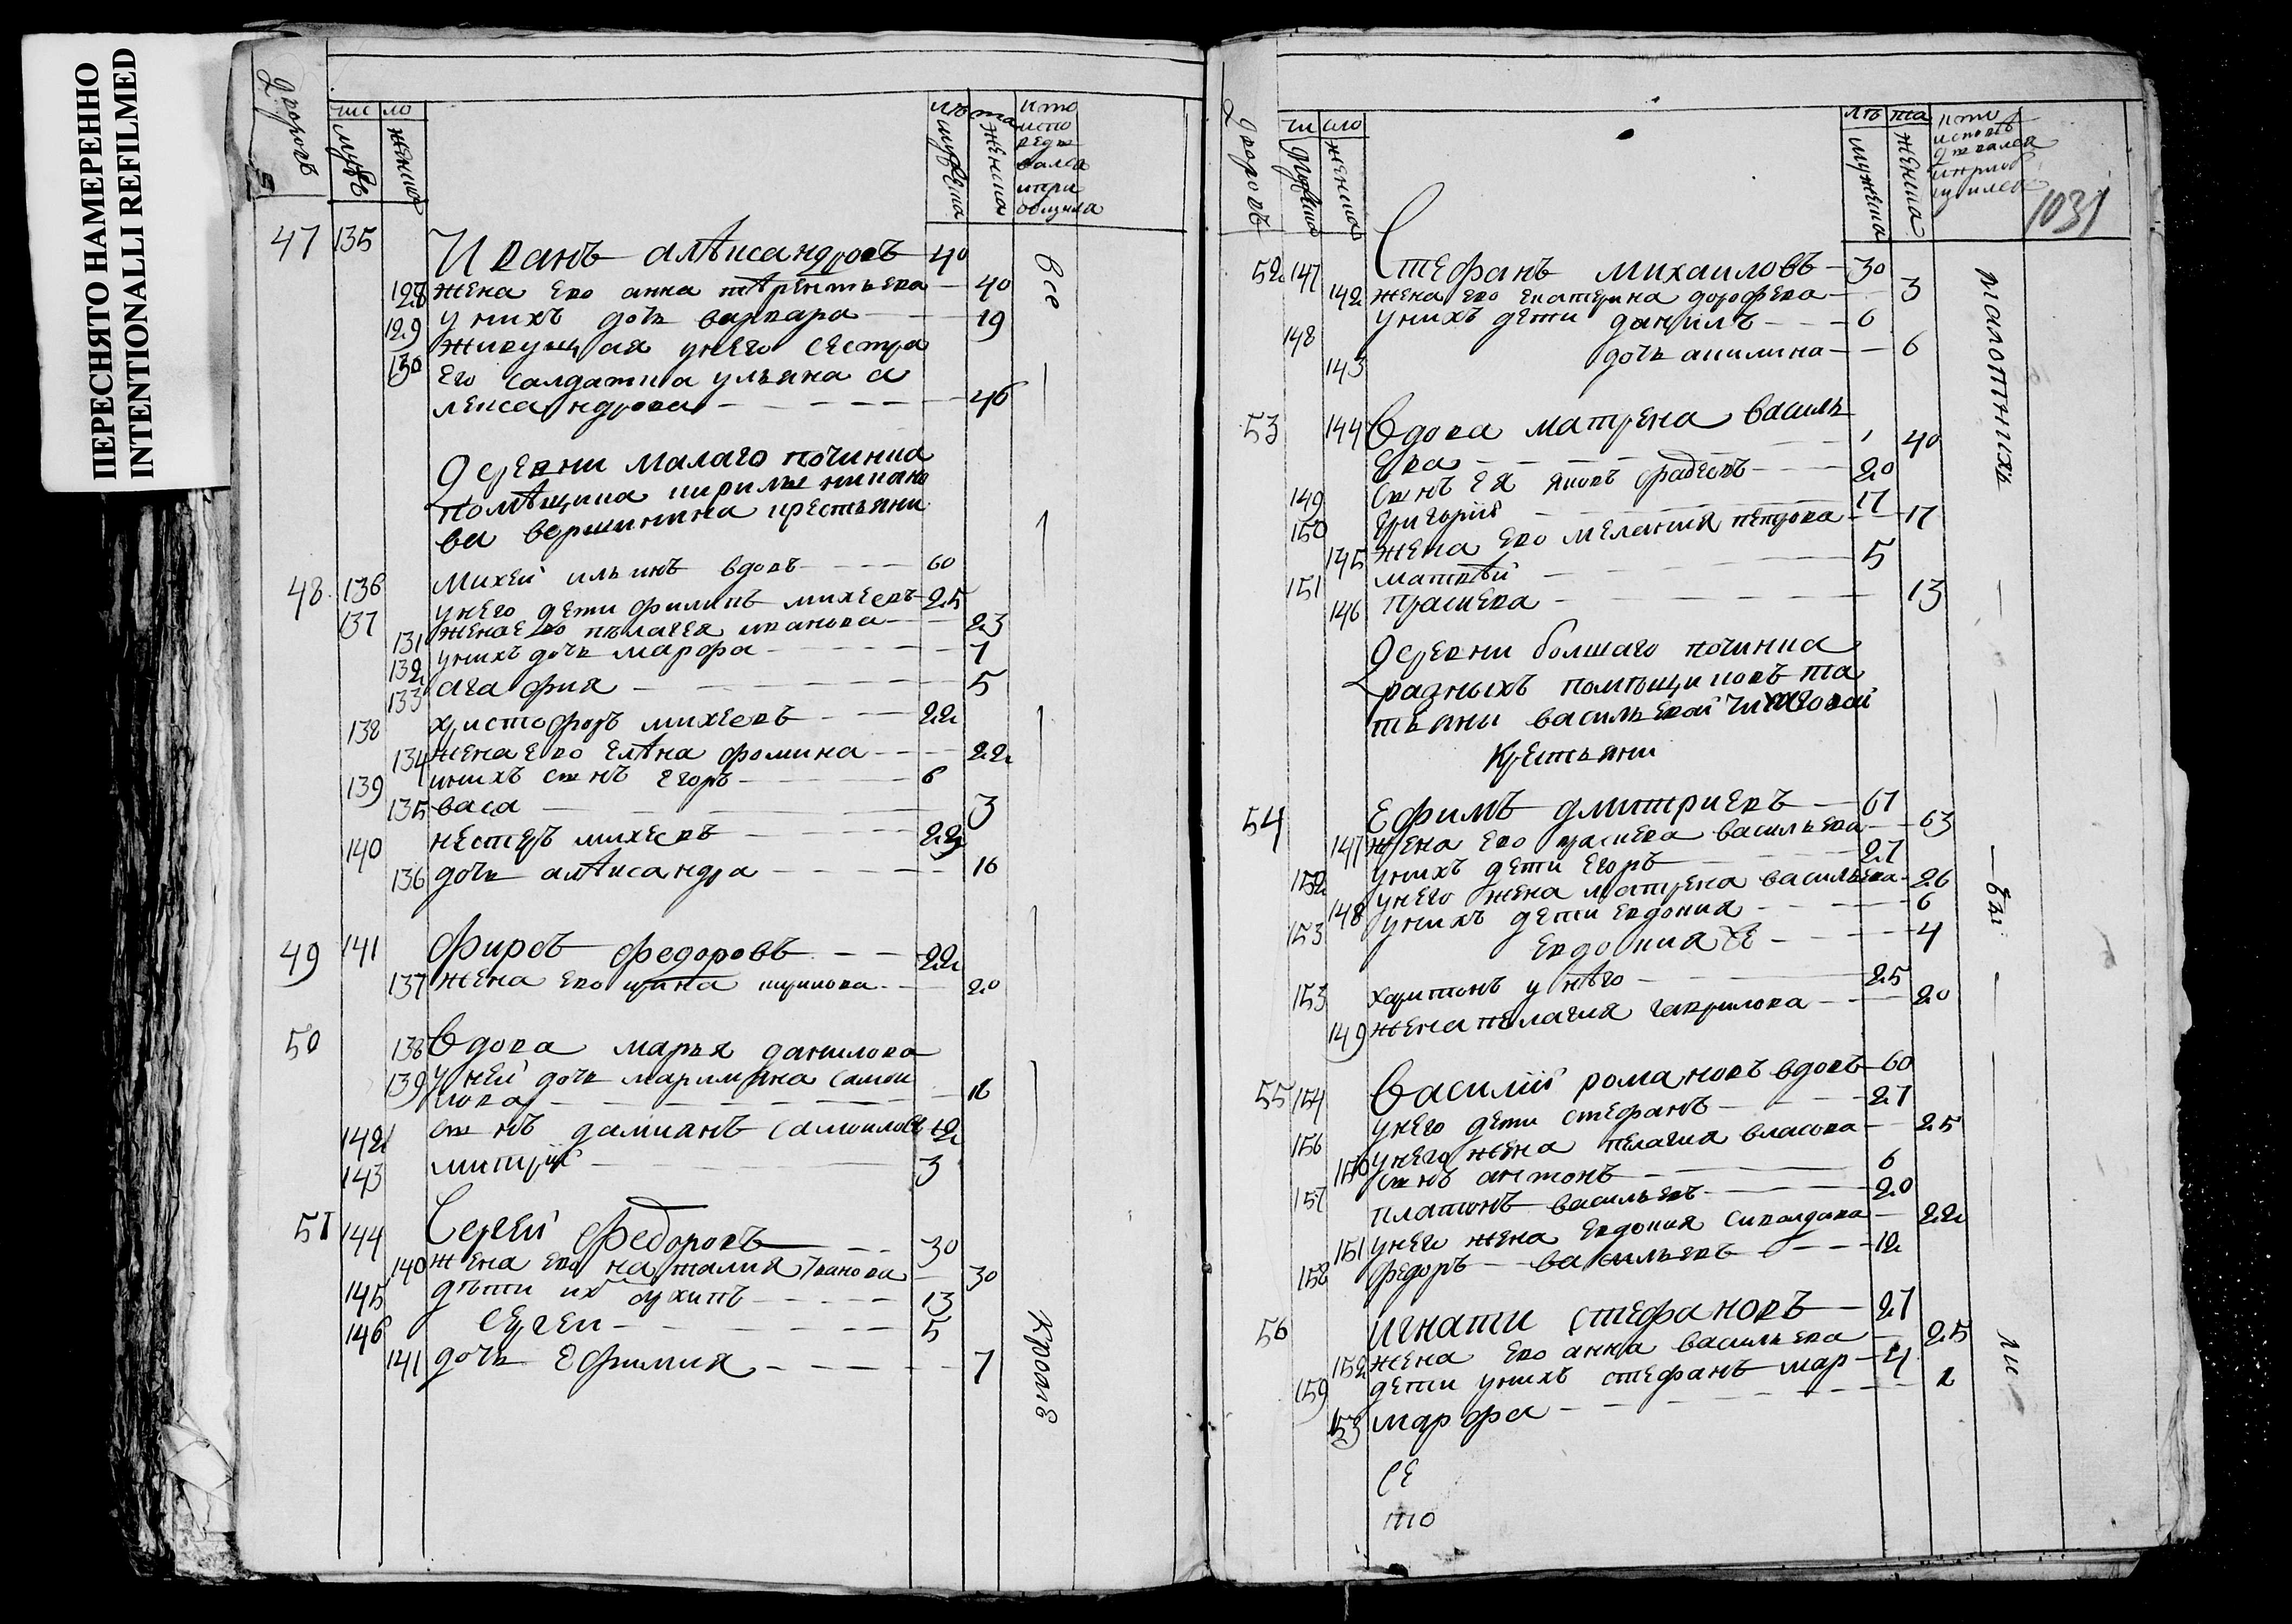 ПЕРЕСНЯТО НАМЕРЕННО
INTENTIONALLI REFILMED
дворовъ
чис ло
мужъ
женска
лѣ та
мужеска
женска
кто
испо
ведо
вался
и при
общилса
47 135 Иванъ алѣксандровъ 40
128 жена ево анна тѣрентьева — 40
129 у нихъ дочь варвара — 19
130 живущая у него сестра
его салдатка ульяна а
лександрова — 46
Деревни малаго починка
помѣщика кирилы никано
ва вершинина крестьяни
48 136 Михей ильинъ вдовъ — 60
137 у него дети филипъ михеевъ 25
131 жена ево пелагея иванова — 23
132 у нихъ дочь марфа — 7
133 агафия — 5
138 христофоръ михеевъ — 22
134 жена ево елѣна фомина — 22
139 у нихъ сынъ егоръ — 6
135 васа — 3
140 нестеръ михеевъ — 22
136 дочь алѣксандра — 16
49 141 Фирсъ Федоровъ — 22
137 жена ево ирина — 20
50 138 Вдова марья данилова
139 у ней дочь маримьяна самои
лова — 16
142 сынъ дамианъ самоиловъ 12
143 митрий — 3
51 144 Сергей Федоровъ — 30
140 жена ево наталия Іванова — 30
145 дѣти их архипъ — 13
146 сергеи — 5
141 дочь Ефимия — 7
все
кромѣ
дворовъ
чи сло
мужеска
женска
лѣ та
мужеска
женска
кто
исповѣ
довался
и приоб
щился
1031
52 147 Стефанъ михаиловъ — 30
142 жена ево екатерина дорофева — 3
148 у нихъ дети данилъ — 6
143 дочь акилина — 6
53 144 Вдова матрена василь
ева — 40
149 сынъ ея яковъ фадеевъ — 20
150 григорий — 17
145 жена ево мелания петрова — 17
151 матвѣй — 5
146 прасковья — 13
Деревни болшаго починка
разныхъ помѣщиковъ та
тьяны васильевой чижовой
крестьяни
54 Ефимъ дмитриевъ — 67
147 жена ево васильева — 63
152 у нихъ дети егоръ — 27
148 у него жена матрена васильева — 26
153 у нихъ дети евдокия — 6
евдокия же — 4
153 харитонъ у нѣго — 25
149 жена пелагия гаврилова — 20
55 154 Василий романовъ вдовъ 60
156 у него дети стефанъ — 27
150 у него жена пелагия власова — 25
157 сынъ антонъ — 6
платонъ васильевъ — 20
151 у него жена евдокия — 22
158 федоръ — васильевъ — 12
56 игнати стефановъ — 27
152 жена ево анна васильева — 25
159 дети у нихъ стефанъ мар — 4
153 марфа — 2
се
то
малолтнихъ
бы
ли